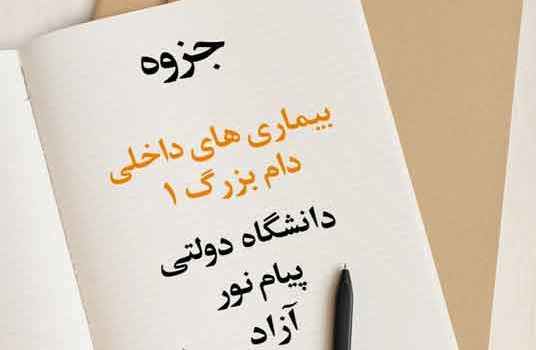 جزوه
بیماری های داخلی
دام بزرگ ۱
دانشگاه دولتی
پیام نور
آزاد